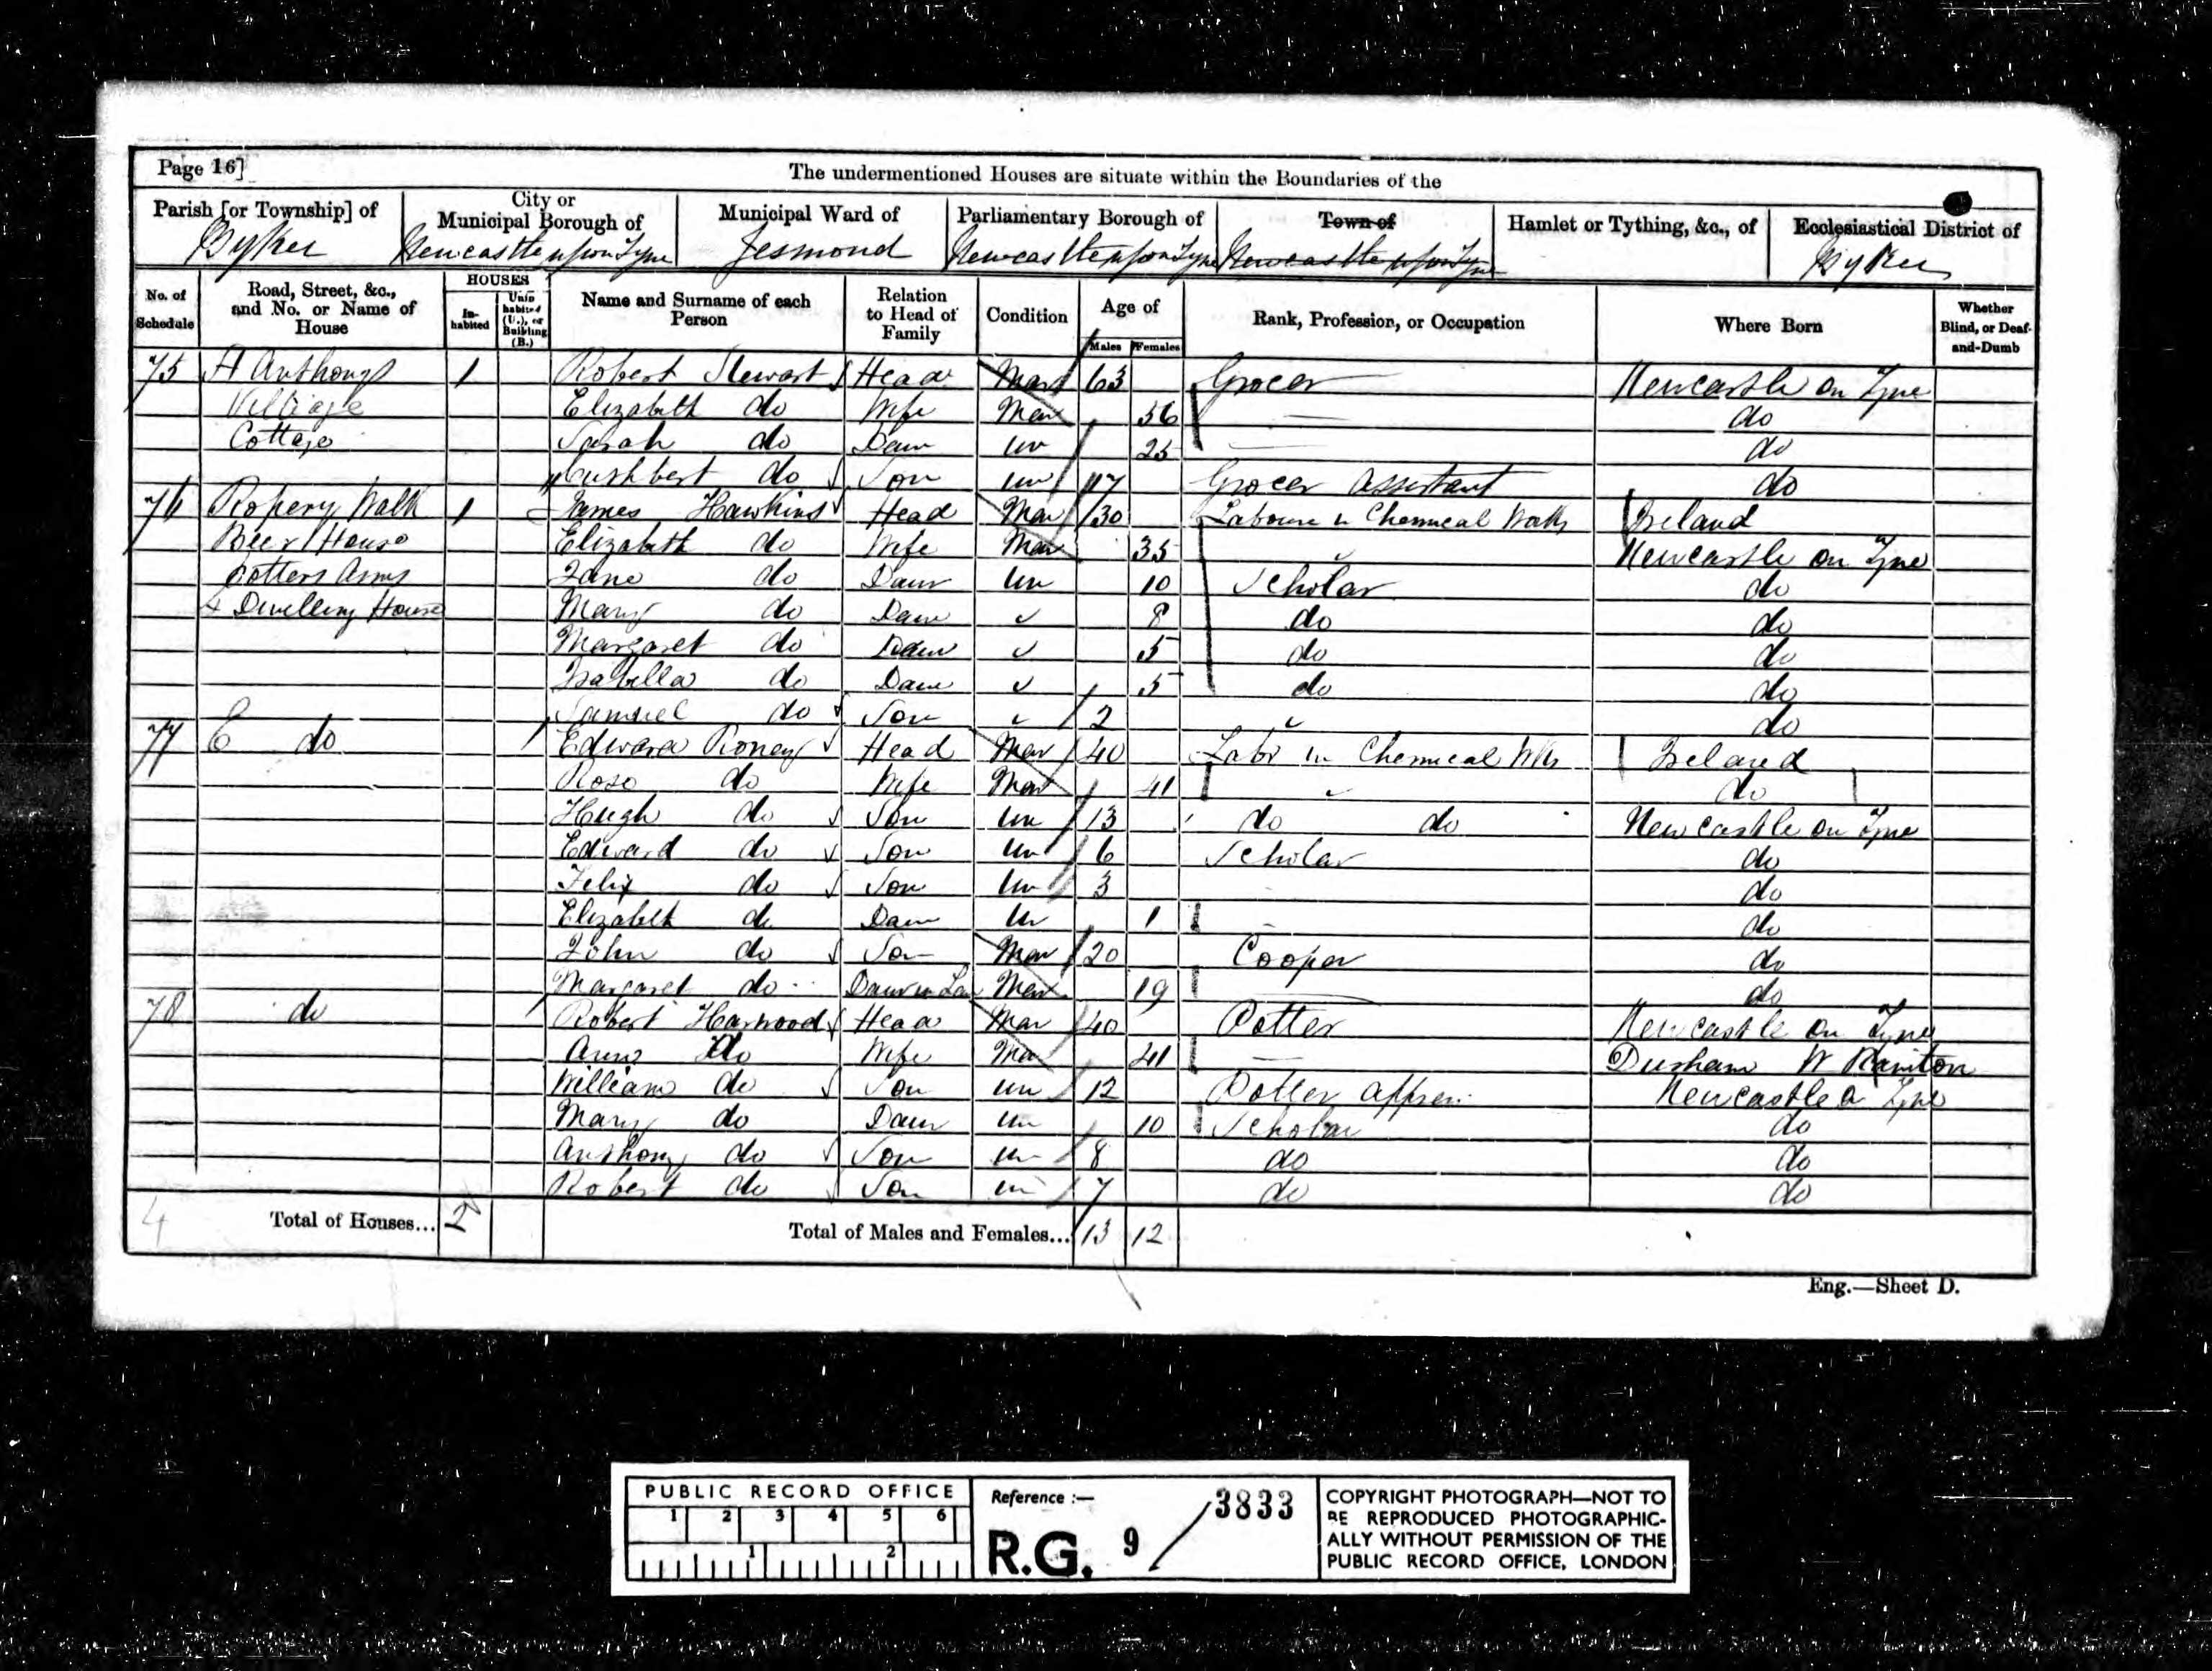 Page 16]
The undermentioned Houses are situate within the Boundaries of the
Parish [or Township] of
Byker
City or Municipal Borough of
Newcastle upon Tyne
Municipal Ward of
Jesmond
Parliamentary Borough of
Newcastle upon Tyne
Town of
Newcastle upon Tyne
Hamlet or Tything, &c., of
Ecclesiastical District of
Byker
No. of Schedule
Road, Street, &c., and No. or Name of House
HOUSES
In-habited
Unin habited (U.), or Building (B.)
Name and Surname of each Person
Relation to Head of Family
Condition
Age of
Males Females
Rank, Profession, or Occupation
Where Born
Whether Blind, or Deaf-and-Dumb
75 St Anthonys 1 Robert Stewart Head Mar 63 Grocer Newcastle on Tyne
Village Elizabeth do Wife Mar 56 do
Cottage Sarah do Daur un 25 do
Cuthbert do Son un 17 Grocer Assistant do
76 Ropery Walk 1 James Hawkins Head Mar 30 Labourer in Chemical Works Ireland
Beer House Elizabeth do Wife Mar 35 Newcastle on Tyne
Potters Arms Jane do Daur un 10 Scholar do
& Dwelling House Mary do Daur 8 do do
Margaret do Daur 5 do do
Isabella do Daur 5 do do
Samuel do Son 2 do
77 do Edward Roney Head Mar 40 Labr in Chemical Wks Ireland
Rose do Wife Mar 41 do
Hugh do Son un 13 do do Newcastle on Tyne
Edward do Son un 6 Scholar do
Felix do Son un 3 do
Elizabeth do Daur un 1 do
John do Son Mar 20 Cooper do
Margaret do Daur in Law Mar 19 do
78 do Robert Harwood Head Mar 40 Potter Newcastle on Tyne
Ann do Wife Mar 41 Durham W Rainton
William do Son un 12 Potter Appren Newcastle o Tyne
Mary do Daur un 10 Scholar do
Anthony do Son un 8 do do
Robert do Son un 7 do do
4 Total of Houses... 2 Total of Males and Females... 13 12
Eng.—Sheet D.
PUBLIC RECORD OFFICE
1 2 3 4 5 6
1 2
Reference :—
R.G. 9 / 3833
COPYRIGHT PHOTOGRAPH—NOT TO
BE REPRODUCED PHOTOGRAPHIC-
ALLY WITHOUT PERMISSION OF THE
PUBLIC RECORD OFFICE, LONDON